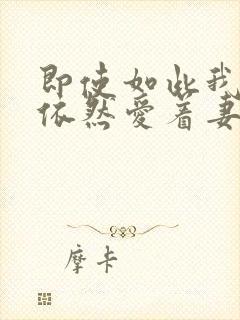 即使如此我
依然爱着妻
摩卡